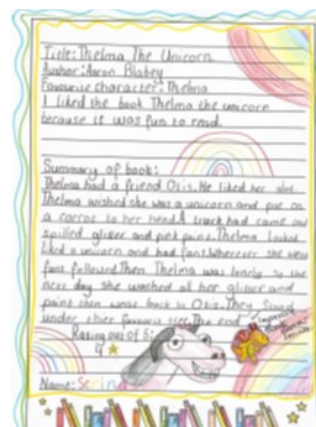 Title: Thelma The Unicorn
Author: Aaron Blabey
Favourite character: Thelma
I liked the book Thelma the unicorn
because it was fun to read.
Summary of book:
Thelma had a friend Otis. He liked her alot.
Thelma wished she was a unicorn and put on
a carrot to her head. A truck had came and
spilled glitter and pink paint. Thelma looked
like a unicorn and had fans. Wherever she went
fans followed. Then Thelma was lonely so the
next day she washed all her glitter and
paint then went back to Otis. They
under their favourite tree. The end
Rating out of 5:
Name: